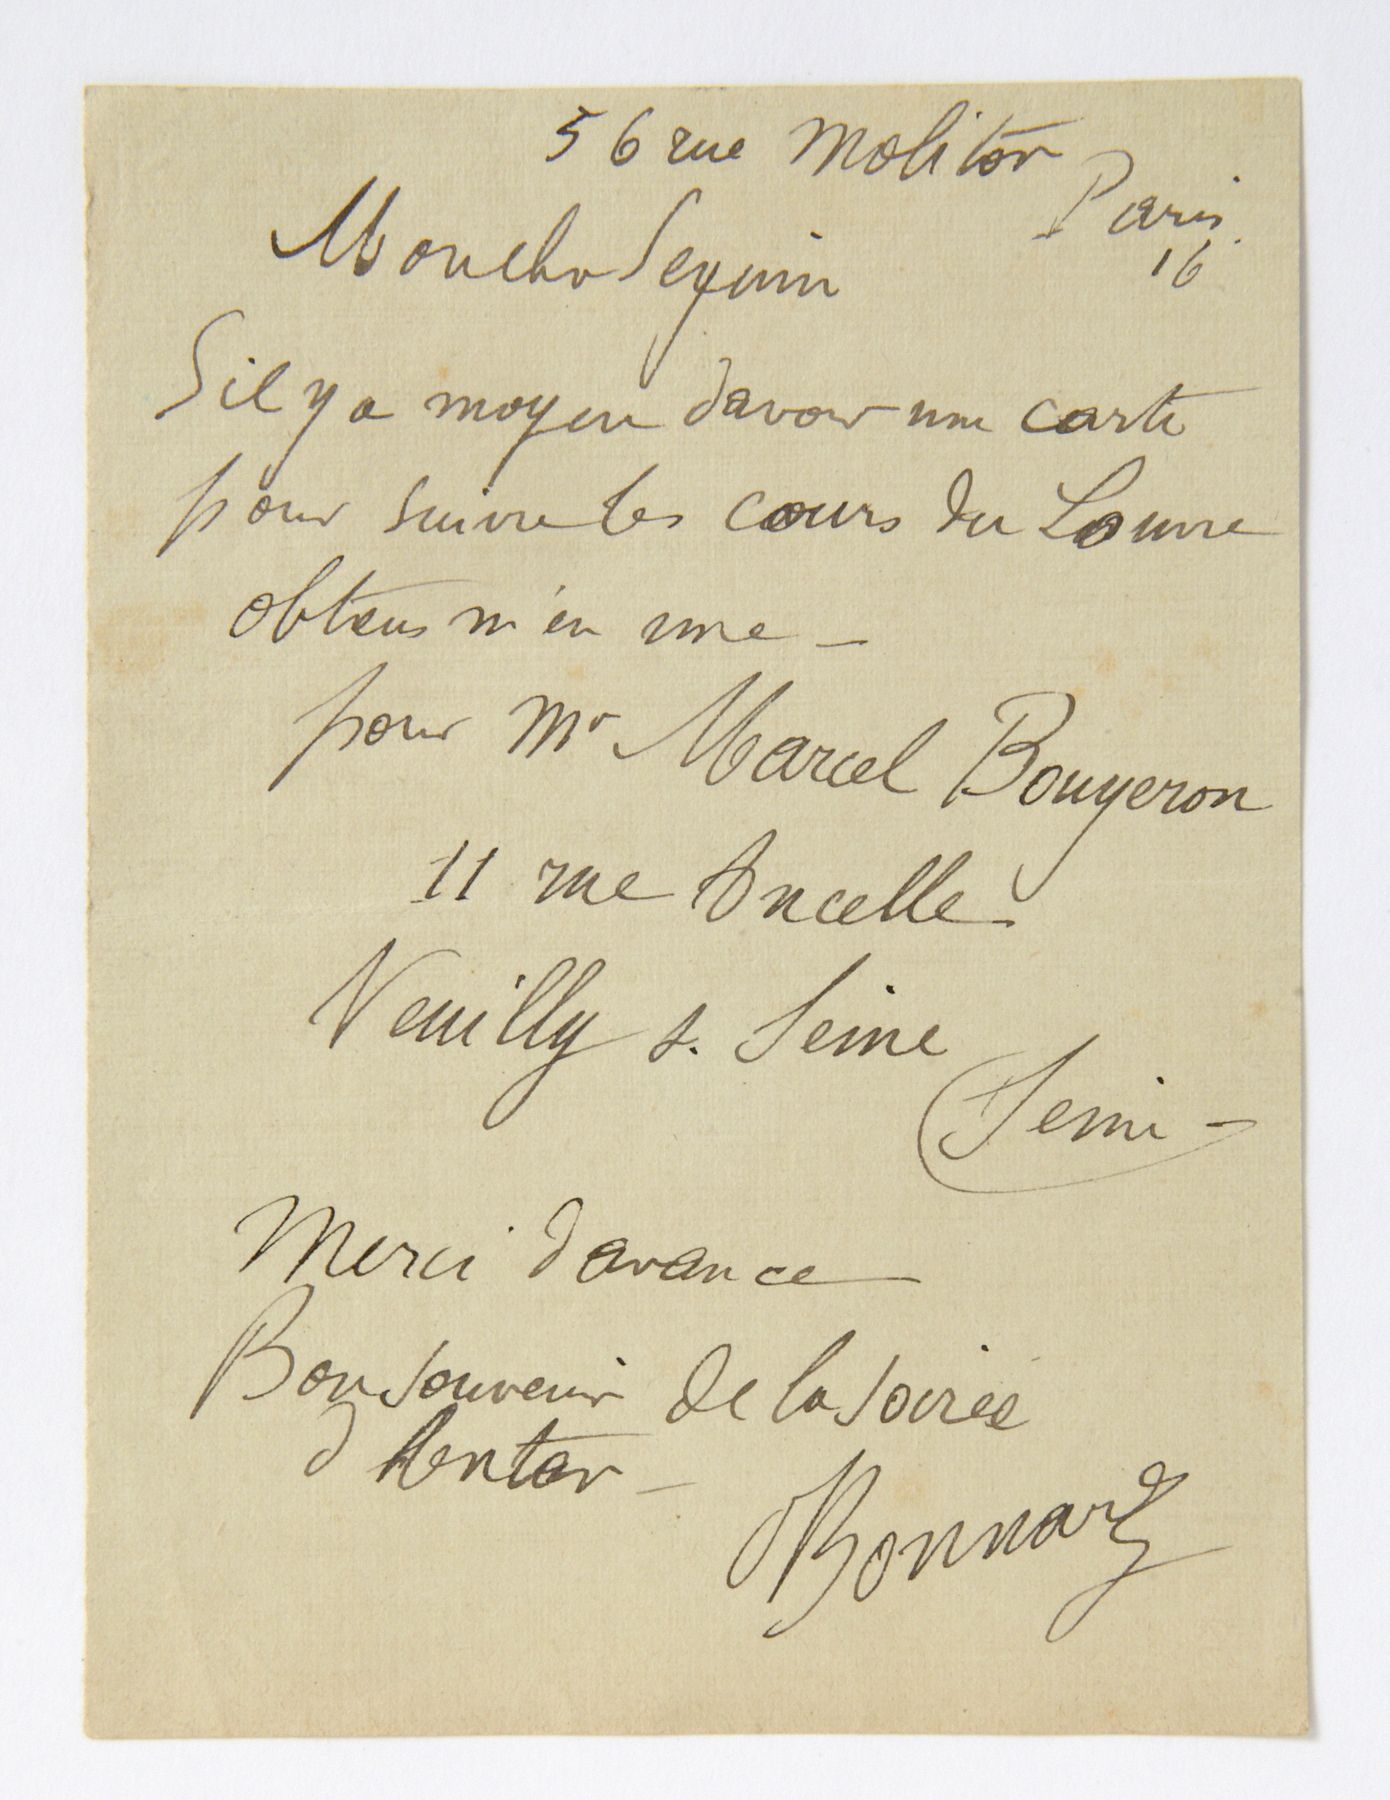 56 rue Molitor
Paris
16
Mon cher Seguin
S'il y a moyen d'avoir une carte
pour suivre les cours du Louvre
obtens m'en une —
pour Mr Marcel Bouyeron
11 rue Ancelle
Neuilly s. Seine
Seine —
Merci d'avance
Bon souvenir de la soirée
d'
Bonnard